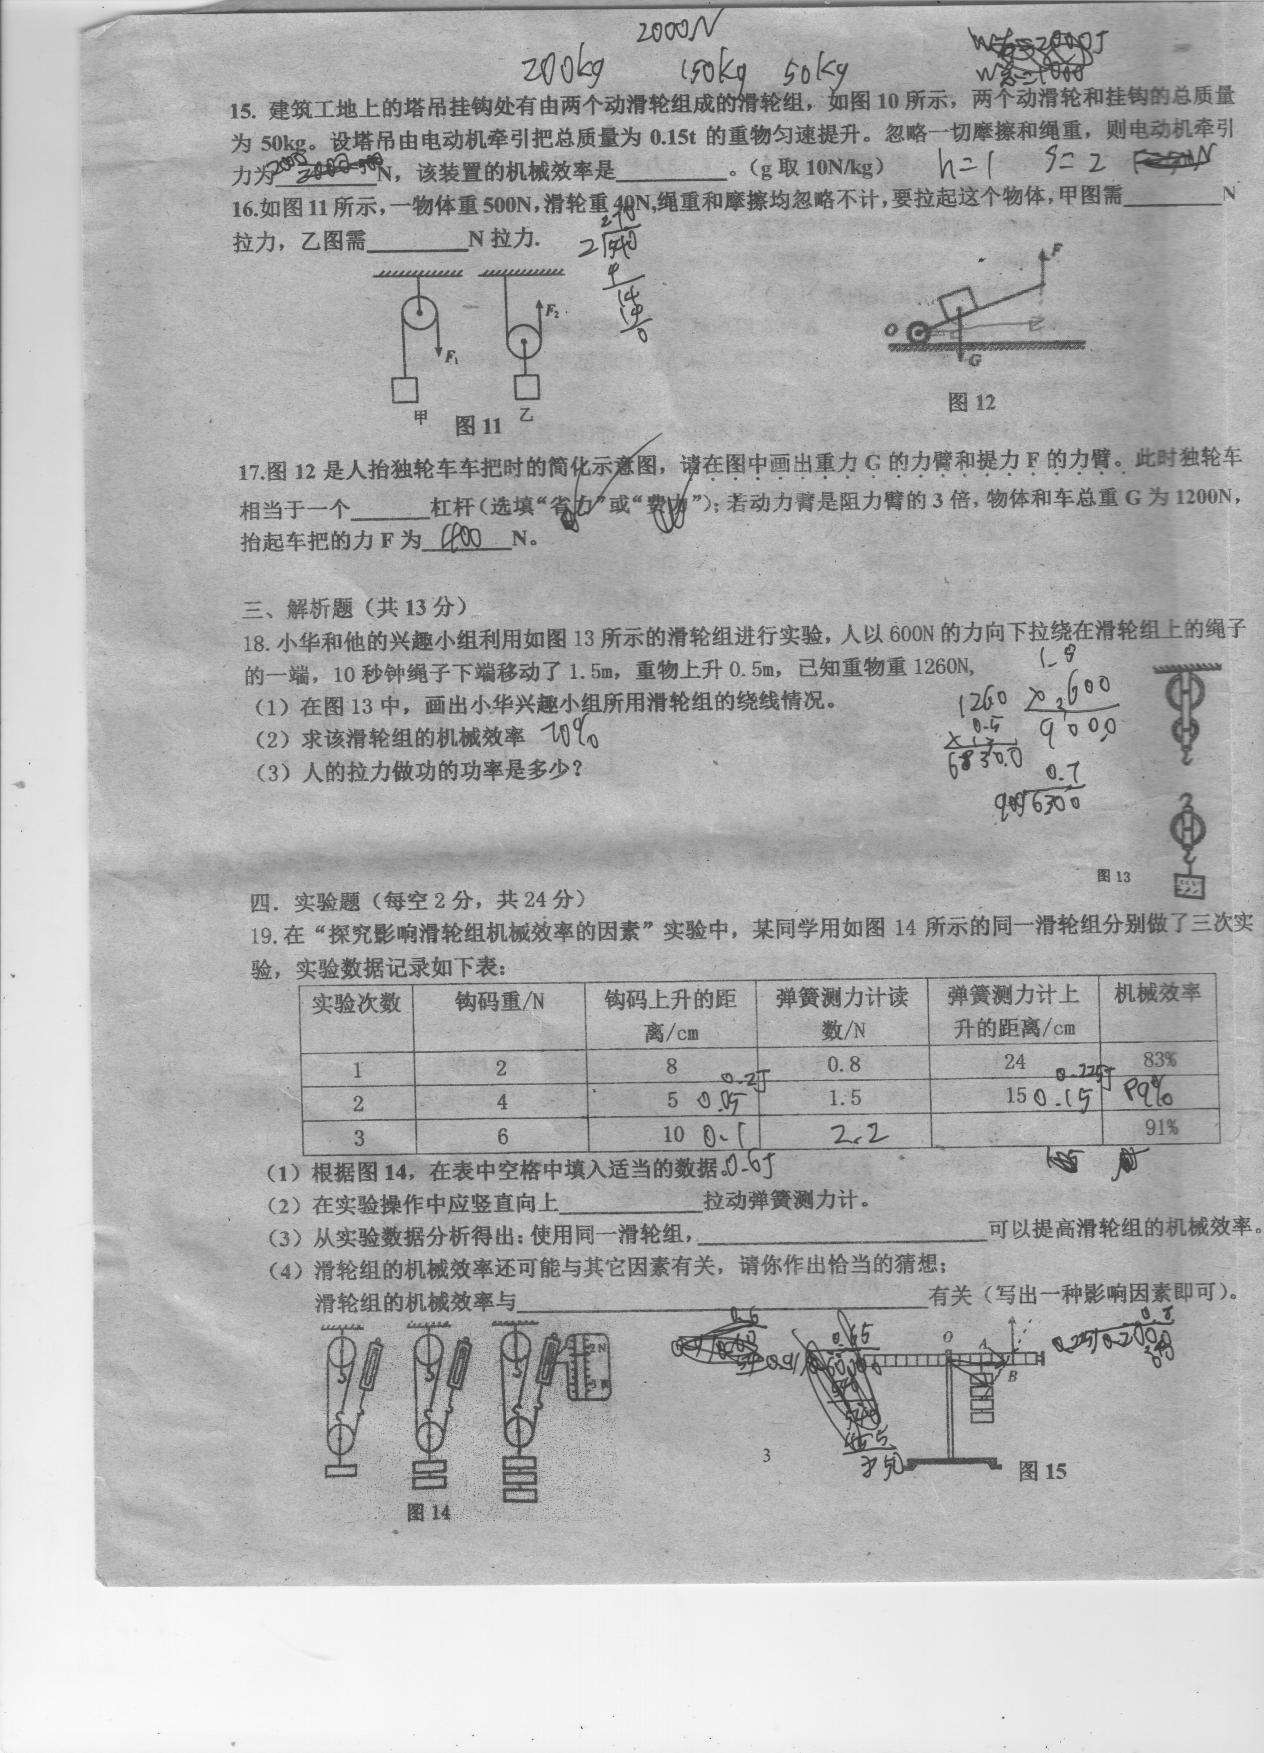 2000N
200kg 150kg 50kg
15. 建筑工地上的塔吊挂钩处有由两个动滑轮组成的滑轮组，如图10所示，两个动滑轮和挂钩的总质量
为50kg。设塔吊由电动机牵引把总质量为0.15t的重物匀速提升。忽略一切摩擦和绳重，则电动机牵引
力为________N，该装置的机械效率是________。（g取10N/kg） h=1 S=2
16.如图11所示，一物体重500N，滑轮重40N,绳重和摩擦均忽略不计，要拉起这个物体，甲图需________N
拉力，乙图需________N拉力.
F₁
甲
F₂
乙
图11
O
F
G
图12
17.图12是人抬独轮车车把时的简化示意图，请在图中画出重力G的力臂和提力F的力臂。此时独轮车
相当于一个______杠杆（选填“省力”或“费力”）；若动力臂是阻力臂的3倍，物体和车总重G为1200N，
抬起车把的力F为 400 N。
三、解析题（共13分）
18.小华和他的兴趣小组利用如图13所示的滑轮组进行实验，人以600N的力向下拉绕在滑轮组上的绳子
的一端，10秒钟绳子下端移动了1.5m，重物上升0.5m，已知重物重1260N,
（1）在图13中，画出小华兴趣小组所用滑轮组的绕线情况。
（2）求该滑轮组的机械效率 70%
（3）人的拉力做功的功率是多少？
1260
0.5
0.7
图13
四．实验题（每空2分，共24分）
19.在“探究影响滑轮组机械效率的因素”实验中，某同学用如图14所示的同一滑轮组分别做了三次实
验，实验数据记录如下表：
实验次数 钩码重/N 钩码上升的距离/cm 弹簧测力计读数/N 弹簧测力计上升的距离/cm 机械效率
1 2 8 0.8 24 83%
0.2J 0.225J
2 4 5 0.05 1.5 15 0.15 89%
3 6 10 0.1 2.2 91%
（1）根据图14，在表中空格中填入适当的数据。0.6J
（2）在实验操作中应竖直向上____________拉动弹簧测力计。
（3）从实验数据分析得出：使用同一滑轮组，________________________可以提高滑轮组的机械效率。
（4）滑轮组的机械效率还可能与其它因素有关，请你作出恰当的猜想；
滑轮组的机械效率与__________________________________有关（写出一种影响因素即可）。
2N
图14
O
A
B
图15
3